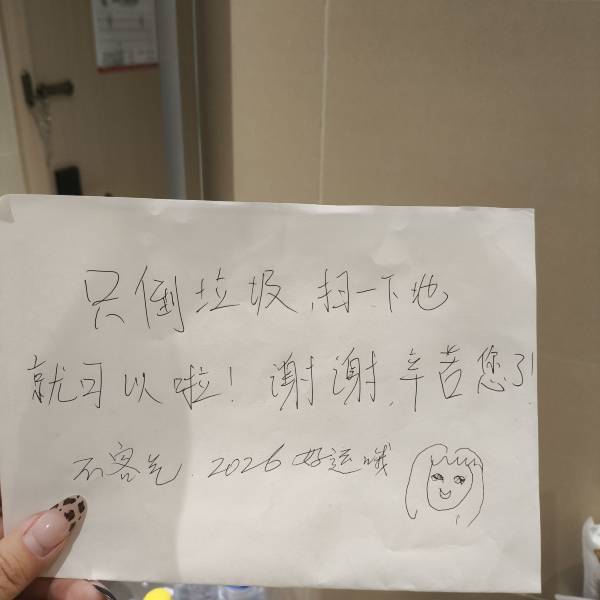 只倒垃圾,扫一下地
就可以啦!谢谢,辛苦您了!
不客气.2026好运哦